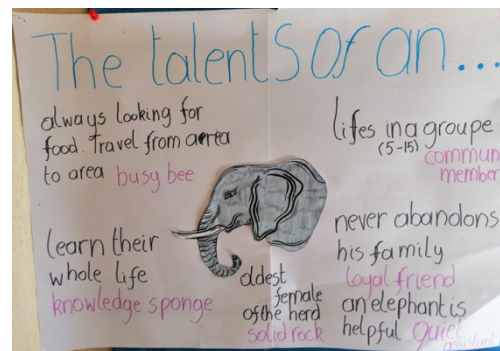 The talents of an...
always looking for
food. Travel from area
to area busy bee
lifes in a groupe
(5-15)
communi
member
learn their
whole life
knowledge sponge
oldest
female
of the herd
solid rock
never abandons
his family
loyal friend
an elephant is
helpful quiet
assistant